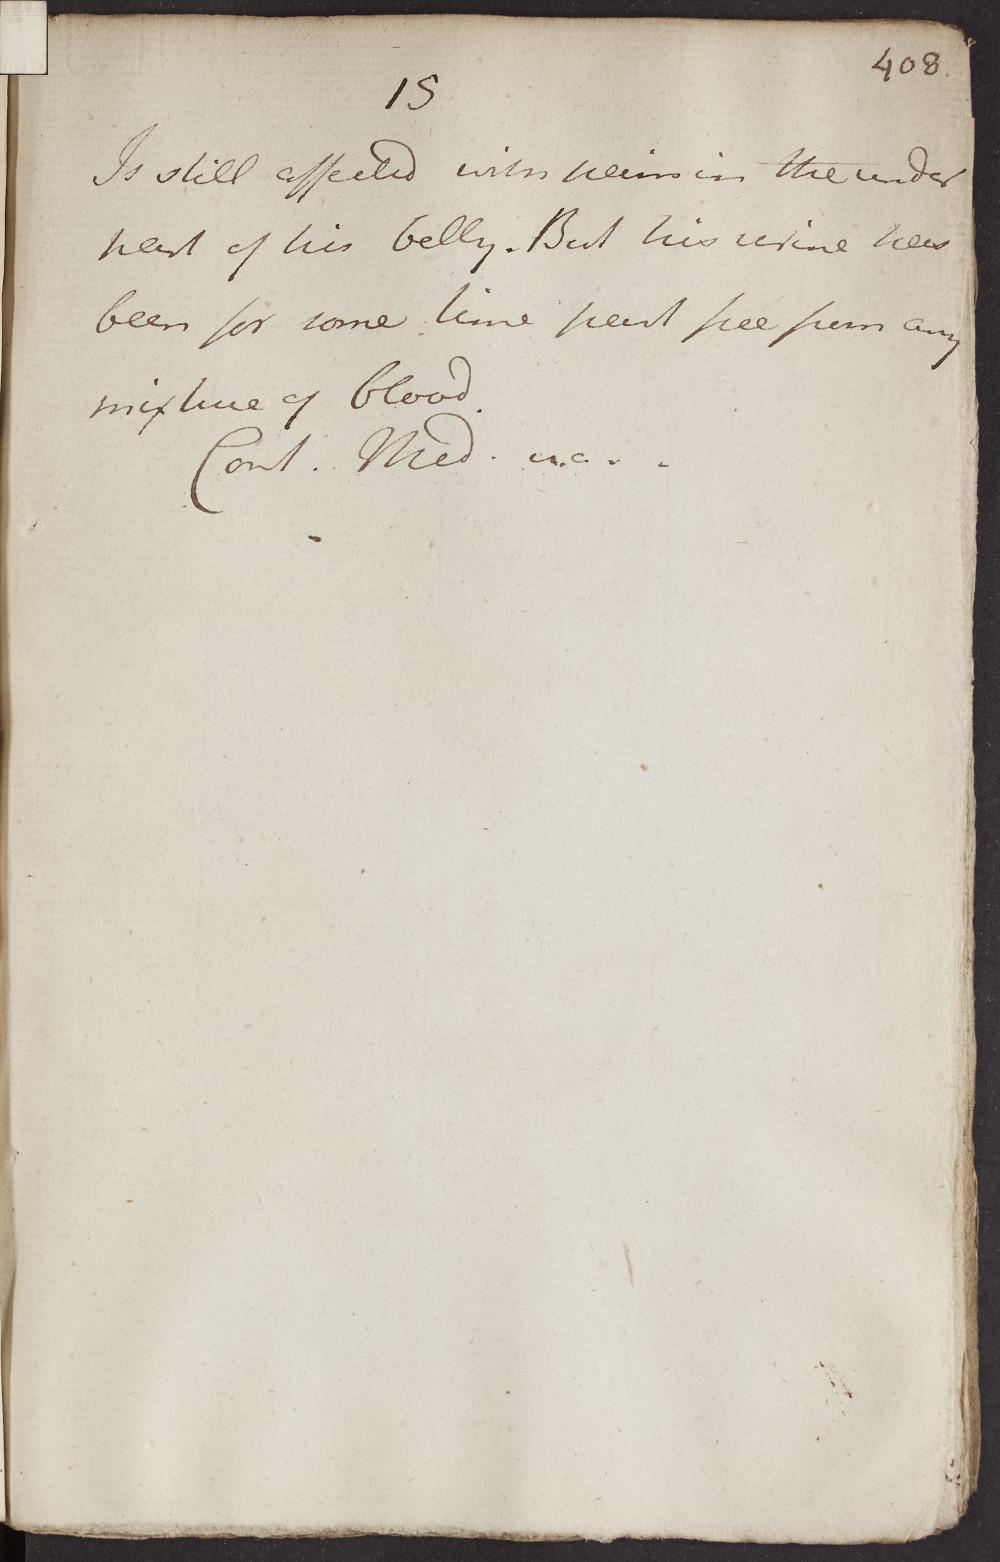 408.
15
Is still affected with pain in the under
part of his belly. But his urine has
been for some time past free from any
mixture of blood.
Cont. Med.